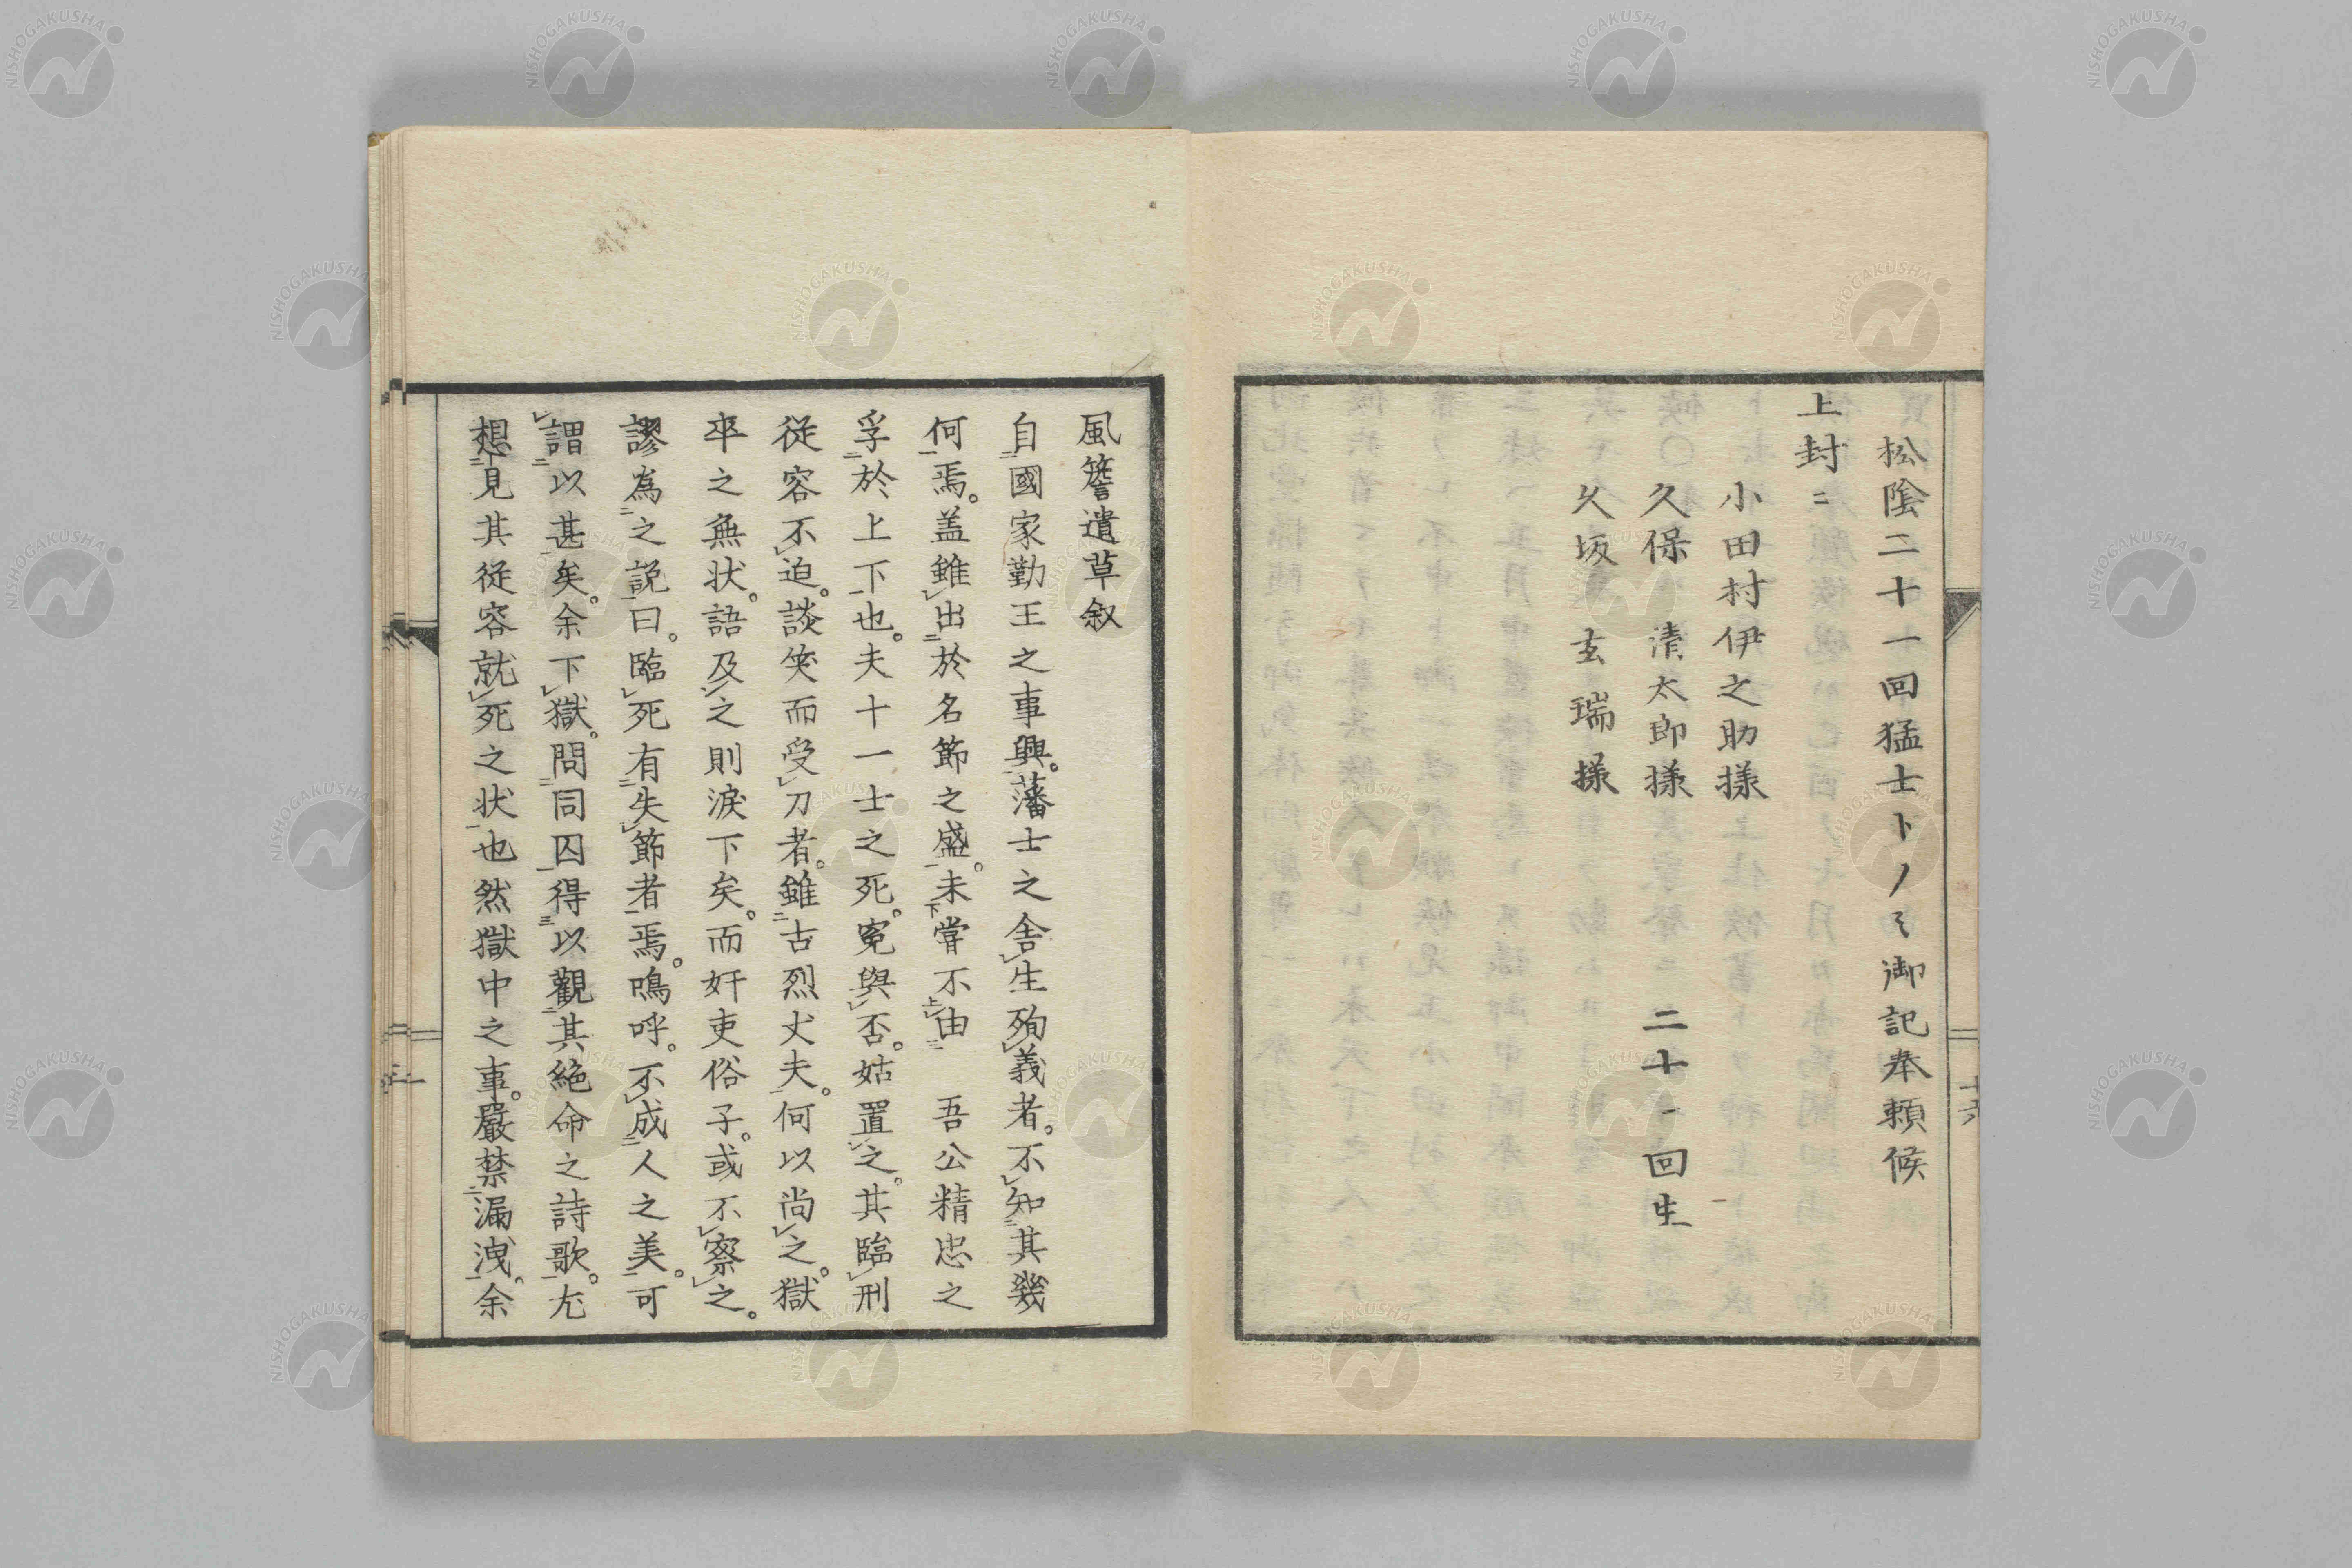 松陰二十一回猛士トノミ御記奉頼候
上封ニ
小田村伊之助様
久保清太郎様 二十一回生
久坂玄瑞様
十六
風簷遺草叙
自国家勤王之事興。藩士之舎生殉義者。不知其幾
何焉。盖雖出於名節之盛。未嘗不由 吾公精忠之
孚於上下也。夫十一士之死。寃與否。姑置之。其臨刑
従容不迫。談笑而受刀者。雖古烈丈夫。何以尚之。獄
卒之無状。語及之則涙下矣。而奸吏俗子。或不察之。
謬為之説曰。臨死有失節者焉。鳴呼。不成人之美。可
謂以甚矣。余下獄。問同囚得以觀其絶命之詩歌。尤
想見其従容就死之状也然獄中之事。嚴禁漏洩。余
NISHOGAKUSHA